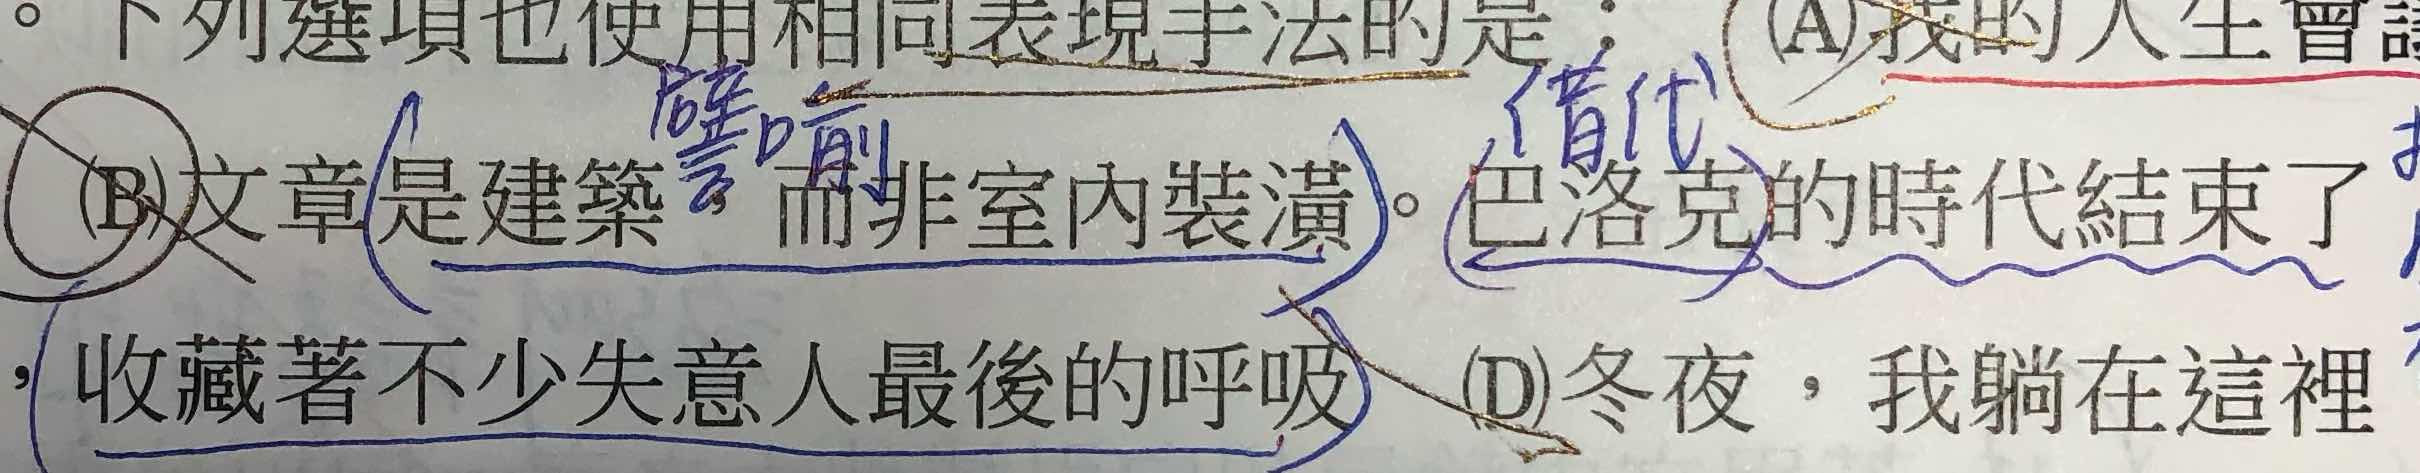 。下列選項也使用相同表現手法的是： (A)我的人生會議
譬喻 借代
(B)文章是建築，而非室內裝潢。巴洛克的時代結束了
，收藏著不少失意人最後的呼吸 (D)冬夜，我躺在這裡